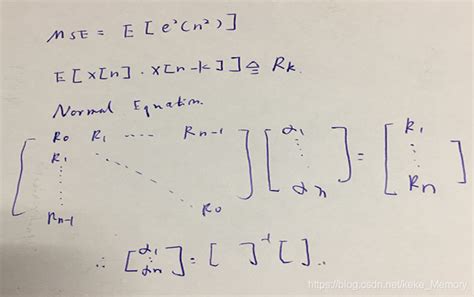 MSE = E[e²(n²)]
E[x[n]·x[n-k]] ≜ Rk
Normal Equation
[R0 R1 ---- Rn-1] [α1] = [R1]
R1
Rn-1 R0 αn Rn
∴ [α1 ⋮ αn] = [ ]⁻¹ [ ]..
https://blog.csdn.net/keke_Memory